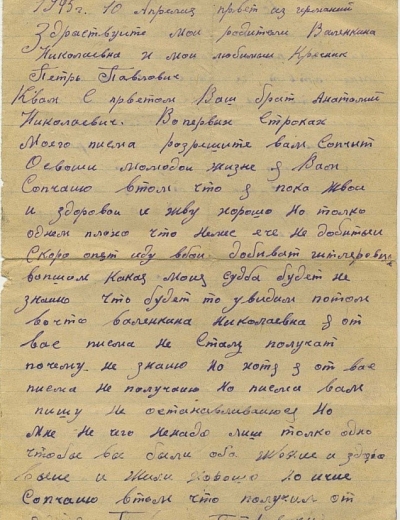 1945 г. 10 Апреля, првет из германий
Здраствуйте мои родители Валенкина
Николаевна и мои любимыи
Петрь Павлович
К вам С прветом Ваш брат Анатолий
Николаевич. Во первых Строках
Моего писма разрешите вам Сопчит
О своши молодои жизне я Вам
Сопчаю втом что я пока жвои
и здоровои и живу хорошо Но толко
одном плохо что Немес ече не добитыи
Скоро опят иду вбои добиват гитлеровце
вапшом Какая Моия судба будет не
знаю что будет то увидим потом
вочто валенкина Николаевна я от
вас писма не Сталу получат
почему не знаю Но хотя я от вас
писма не получаю Но писма вам
пишу не останавливаюся Но
Мне не чего ненада лиш толко одно
чтобы вы были оба Живые и здоро
выие и Жили Хорошо
Сопчаю втом что получим от